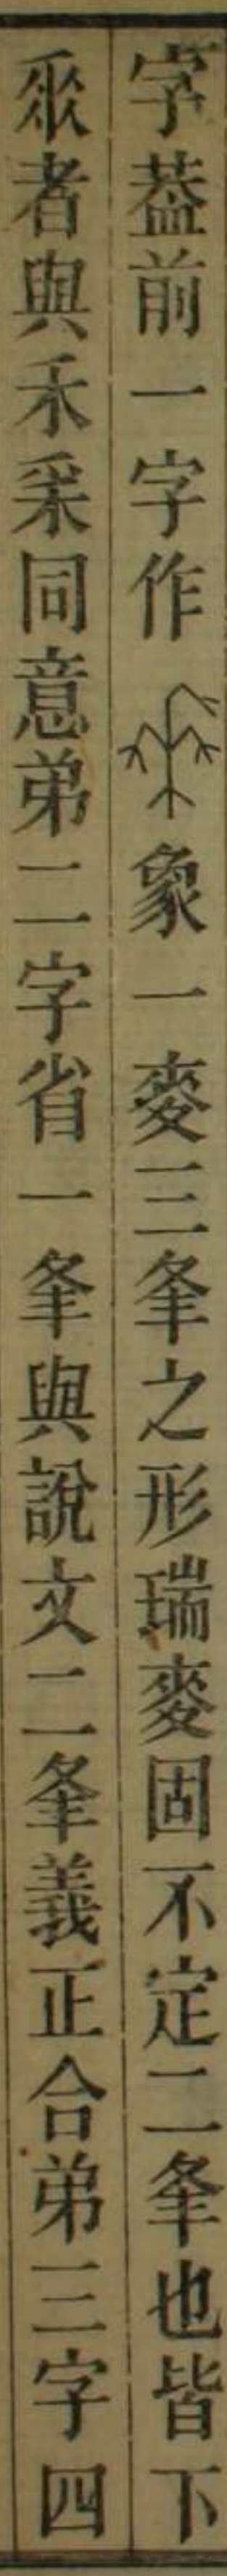 字葢前一字作象一麥三夆之形瑞麥固不定二夆也皆下
𠂹者與禾采同意弟二字省一夆與說文二夆義正合弟三字四